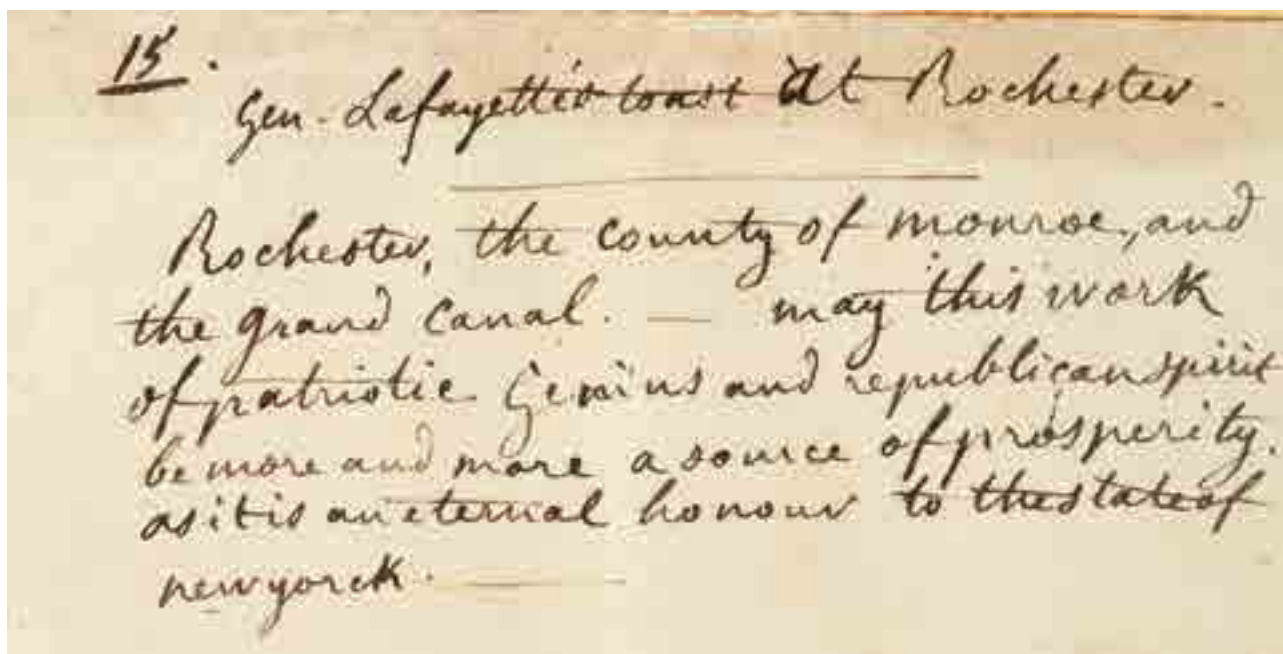 15.
Gen. Lafayette's toast at Rochester.
Rochester, the county of monroe, and
the grand canal. — may this work
of patriotic Genius and republican spirit
be more and more a source of prosperity.
as it is an eternal honour to the state of
new yorck. —